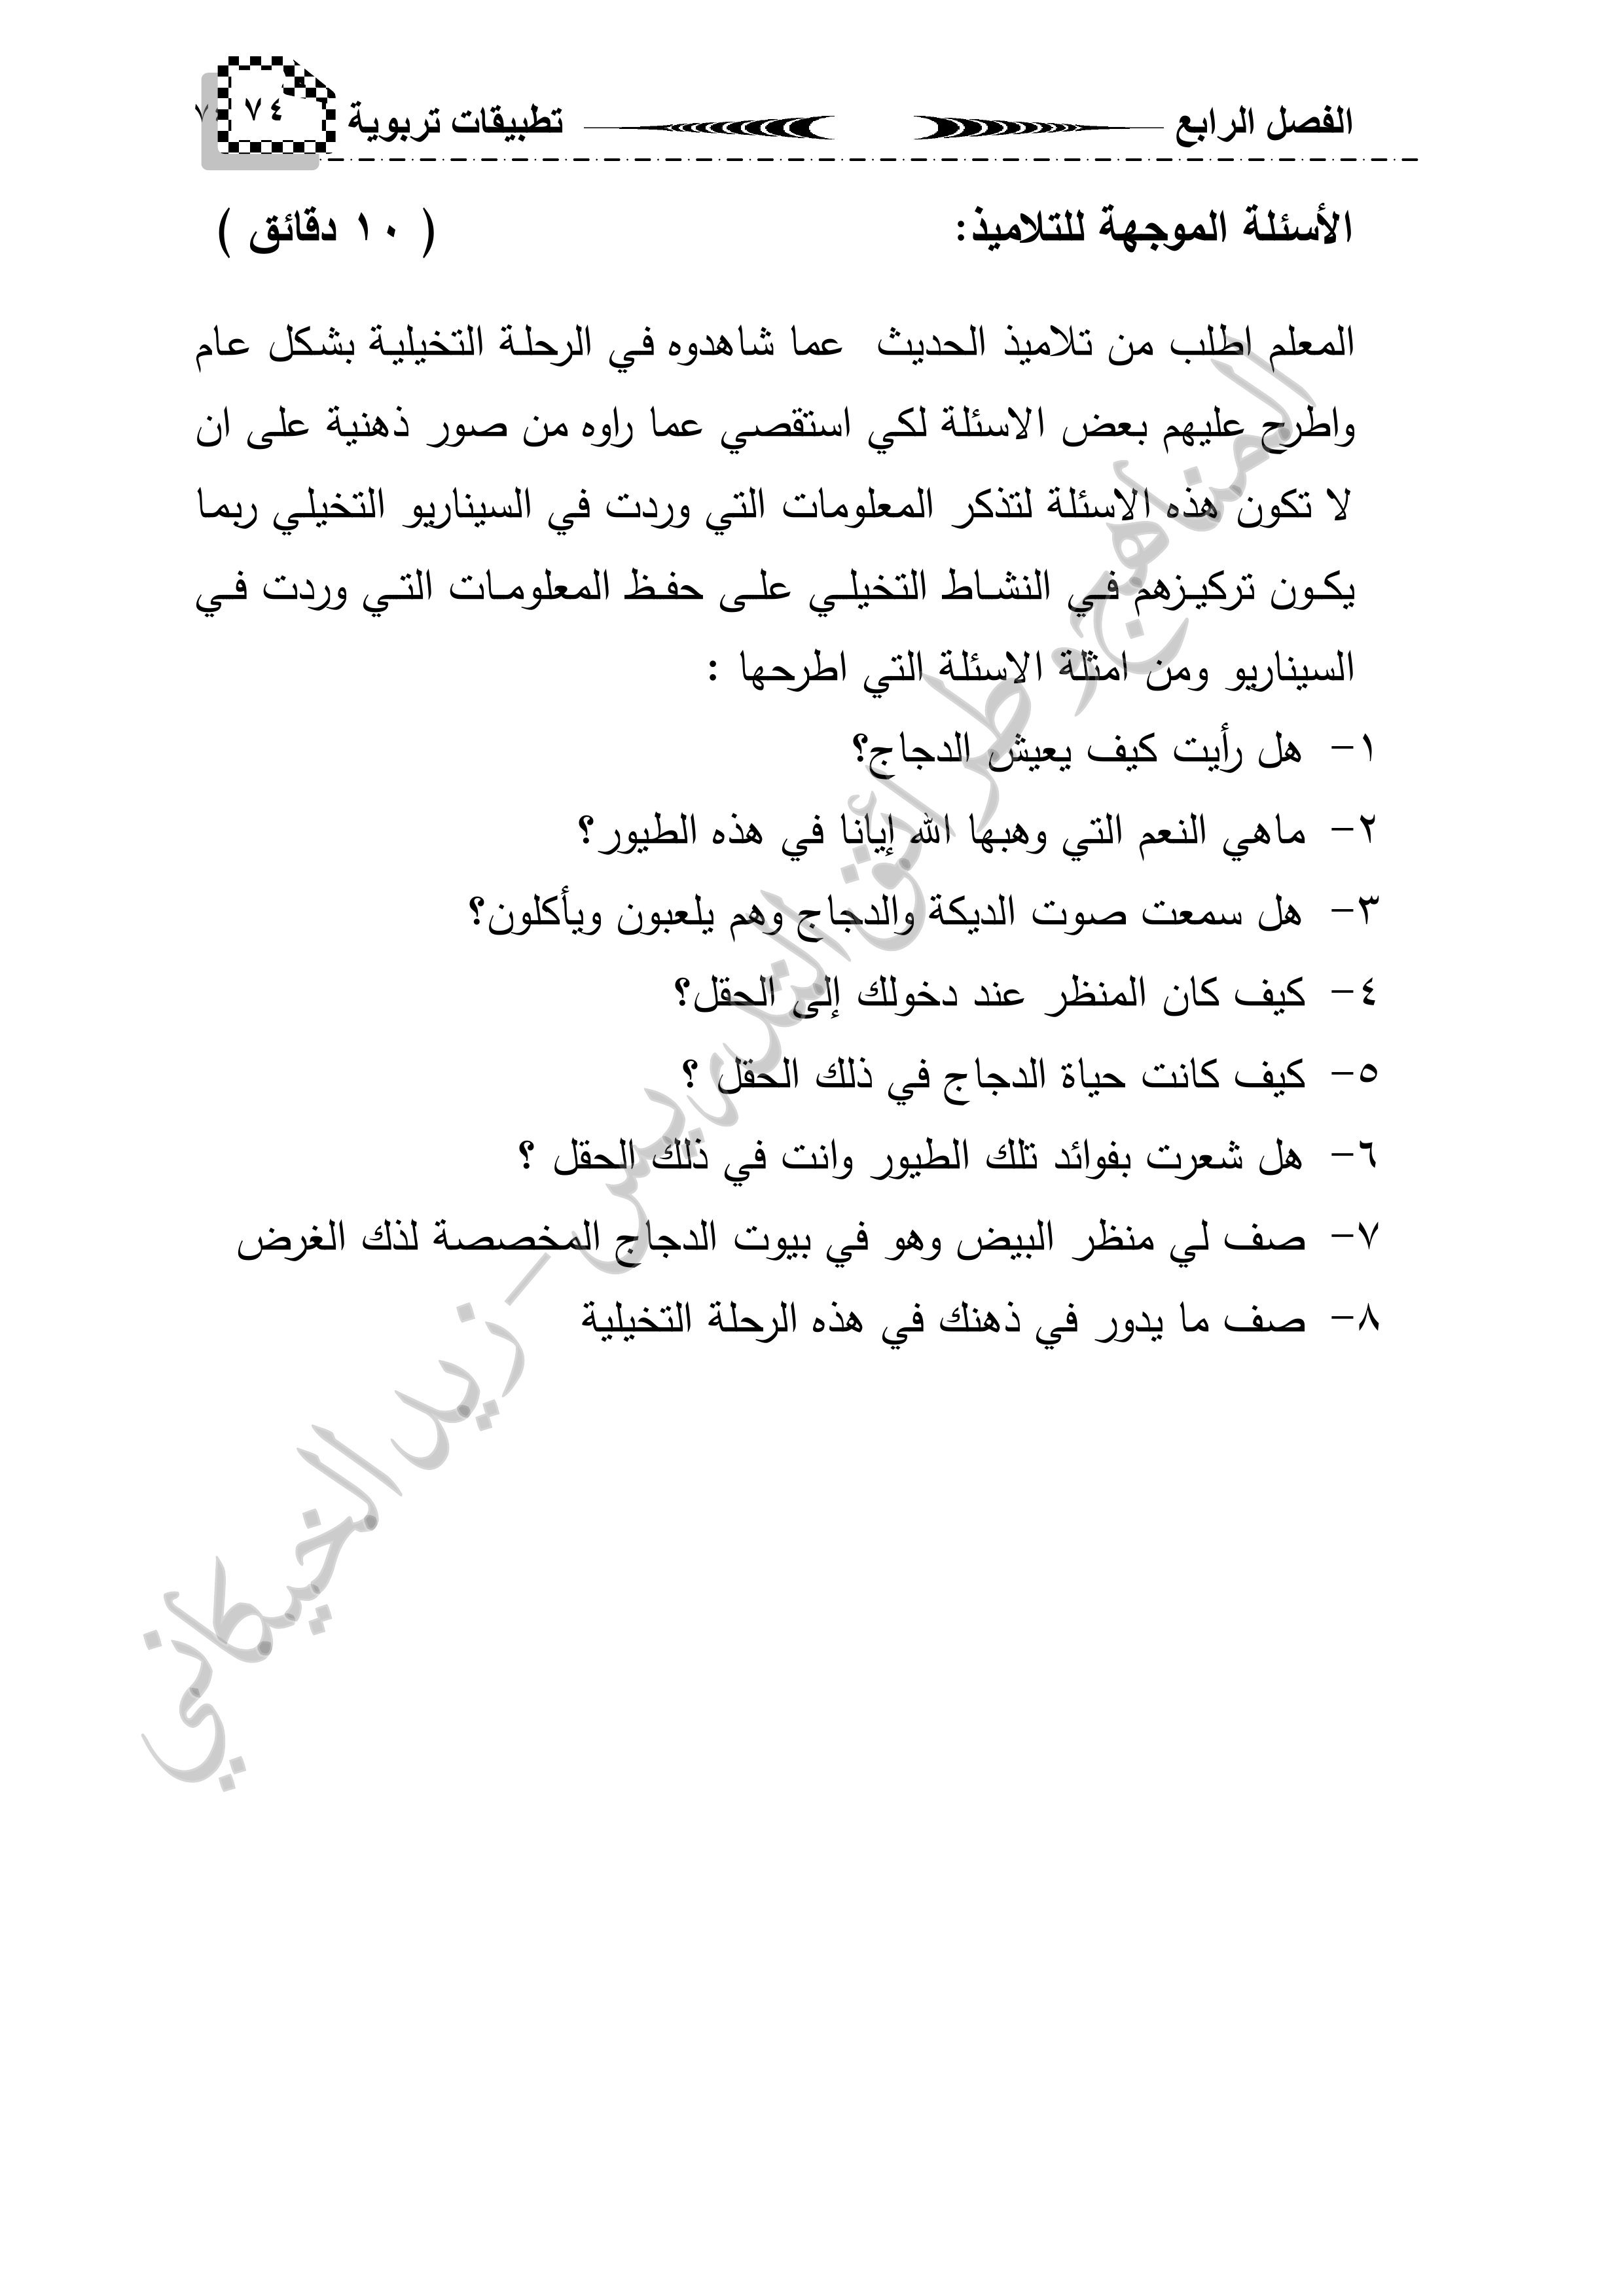 الفصل الرابع تطبيقات تربوية ٧٤
الأسئلة الموجهة للتلاميذ: ( ١٠ دقائق )
المعلم اطلب من تلاميذ الحديث عما شاهدوه في الرحلة التخيلية بشكل عام
واطرح عليهم بعض الاسئلة لكي استقصي عما راوه من صور ذهنية على ان
لا تكون هذه الاسئلة لتذكر المعلومات التي وردت في السيناريو التخيلي ربما
يكون تركيزهم في النشاط التخيلي على حفظ المعلومات التي وردت في
السيناريو ومن امثلة الاسئلة التي اطرحها :
١- هل رأيت كيف يعيش الدجاج؟
٢- ماهي النعم التي وهبها الله إيانا في هذه الطيور؟
٣- هل سمعت صوت الديكة والدجاج وهم يلعبون ويأكلون؟
٤- كيف كان المنظر عند دخولك إلى الحقل؟
٥- كيف كانت حياة الدجاج في ذلك الحقل ؟
٦- هل شعرت بفوائد تلك الطيور وانت في ذلك الحقل ؟
٧- صف لي منظر البيض وهو في بيوت الدجاج المخصصة لذك الغرض
٨- صف ما يدور في ذهنك في هذه الرحلة التخيلية
المناهج وطرائق التدريس - زيد الخيكاني